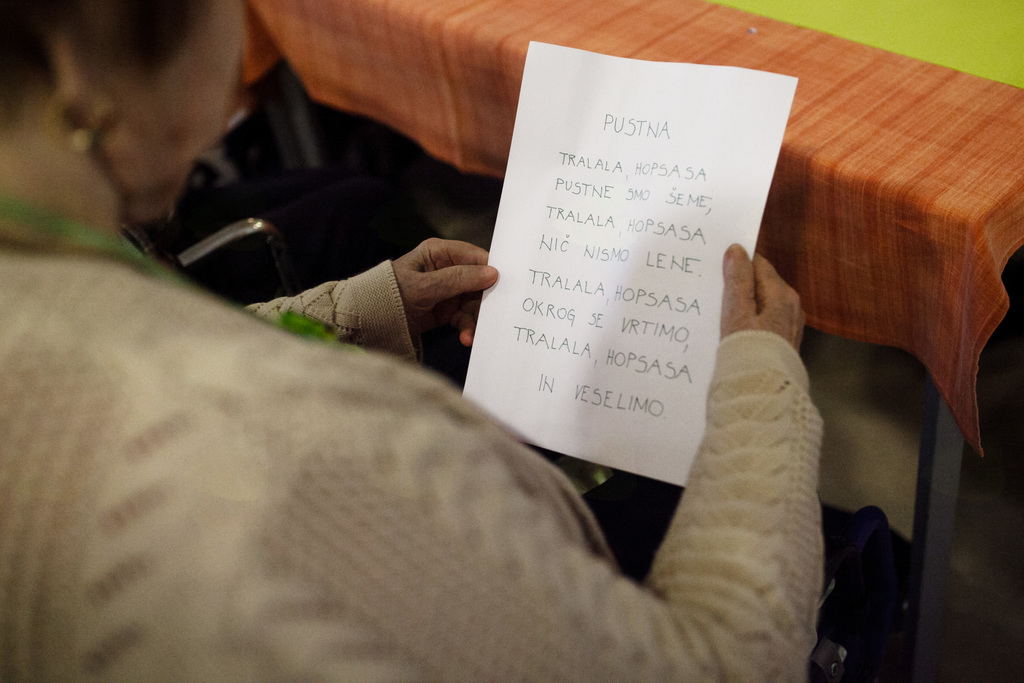 PUSTNA
TRALALA, HOPSASA
PUSTNE SMO ŠEME,
TRALALA, HOPSASA
NIČ NISMO LENE.
TRALALA, HOPSASA
OKROG SE VRTIMO,
TRALALA, HOPSASA
IN VESELIMO.